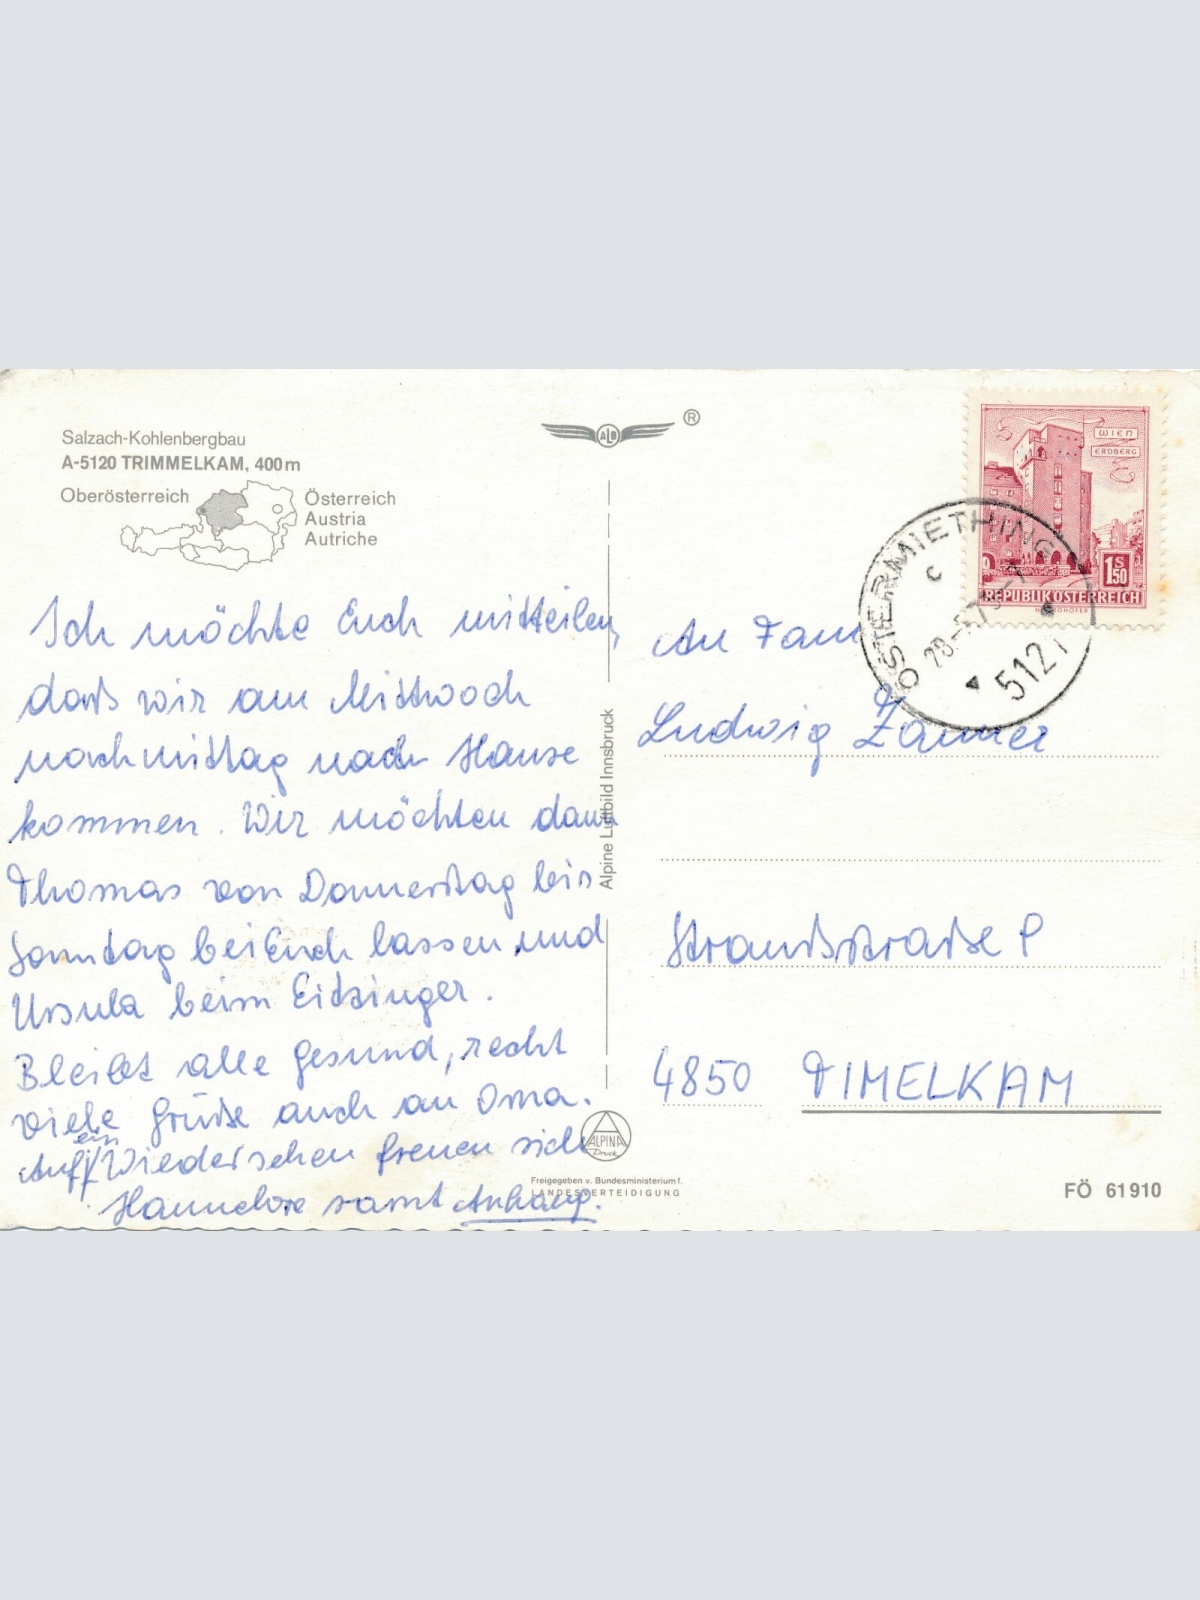 Salzach-Kohlenbergbau
A-5120 TRIMMELKAM, 400m
Oberösterreich
Österreich
Austria
Autriche
Ich möchte Euch mitteilen,
daß wir am Mittwoch
nachmittag nach Hause
kommen. Wir möchten dann
Thomas von Donnerstag bis
Sonntag bei Euch lassen und
Ursula beim Eitzinger.
Bleibt alle gesund, recht
viele Grüße auch an Oma.
Auf ein Wiedersehen freuen sich
Hannelore samt Anhang.
ALB
®
Alpine Luftbild Innsbruck
ALPINA
Druck
Freigegeben v. Bundesministerium f.
LANDESVERTEIDIGUNG
WIEN
ERDBERG
1S50
REPUBLIK ÖSTERREICH
OSTERMIETHING
c
5121
An Fam
Ludwig
4850 TIMELKAM
FÖ 61910